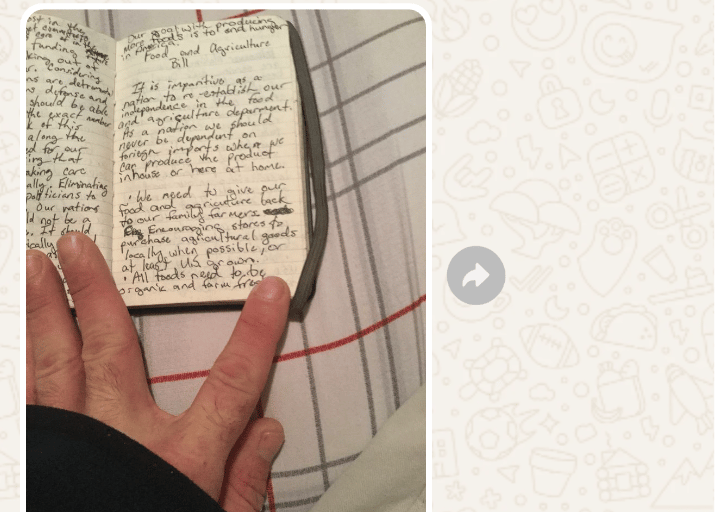 st in the
funding
king out at
r. considering
ns are detrimen
ns, defense and
should be able
the exact number
k of this
along the
d for our
ing that
aking care
ally Eliminating
politicians to
Our nations
ld not be a
. It should
ically
Our goal with producing
more foods is to end hunger
in America.
Food and Agriculture
Bill
It is imparitive as a
nation to re-establish our
independence in the food
and agriculture deparment.
As a nation we should
never be dependent on
foriegn imports where we
can produce the product
inhouse or here at home.
• We need to give our
food and agriculture back
to our family farmers
Encouraging stores to
purchase agricultural goods
locally when possible, or
at least US grown.
• All foods need to be
organic and farm fres